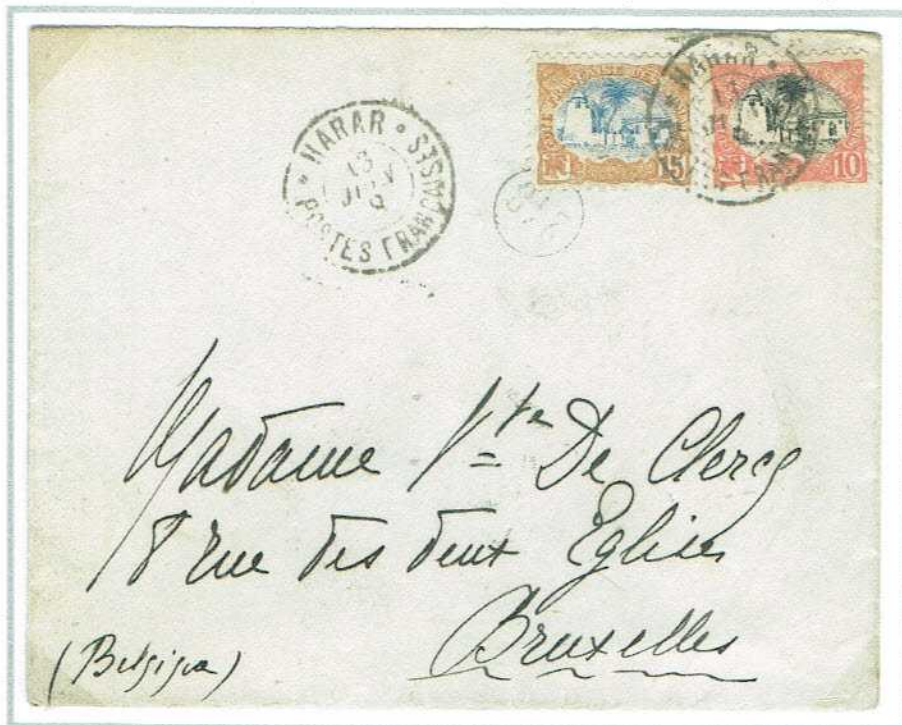 HARAR
13
JUIN
POSTES FRANÇAISES
15
10
HARAR
13
Madame Vte De Clercq
8 rue des deux Eglises
Bruxelles
(Belgique)